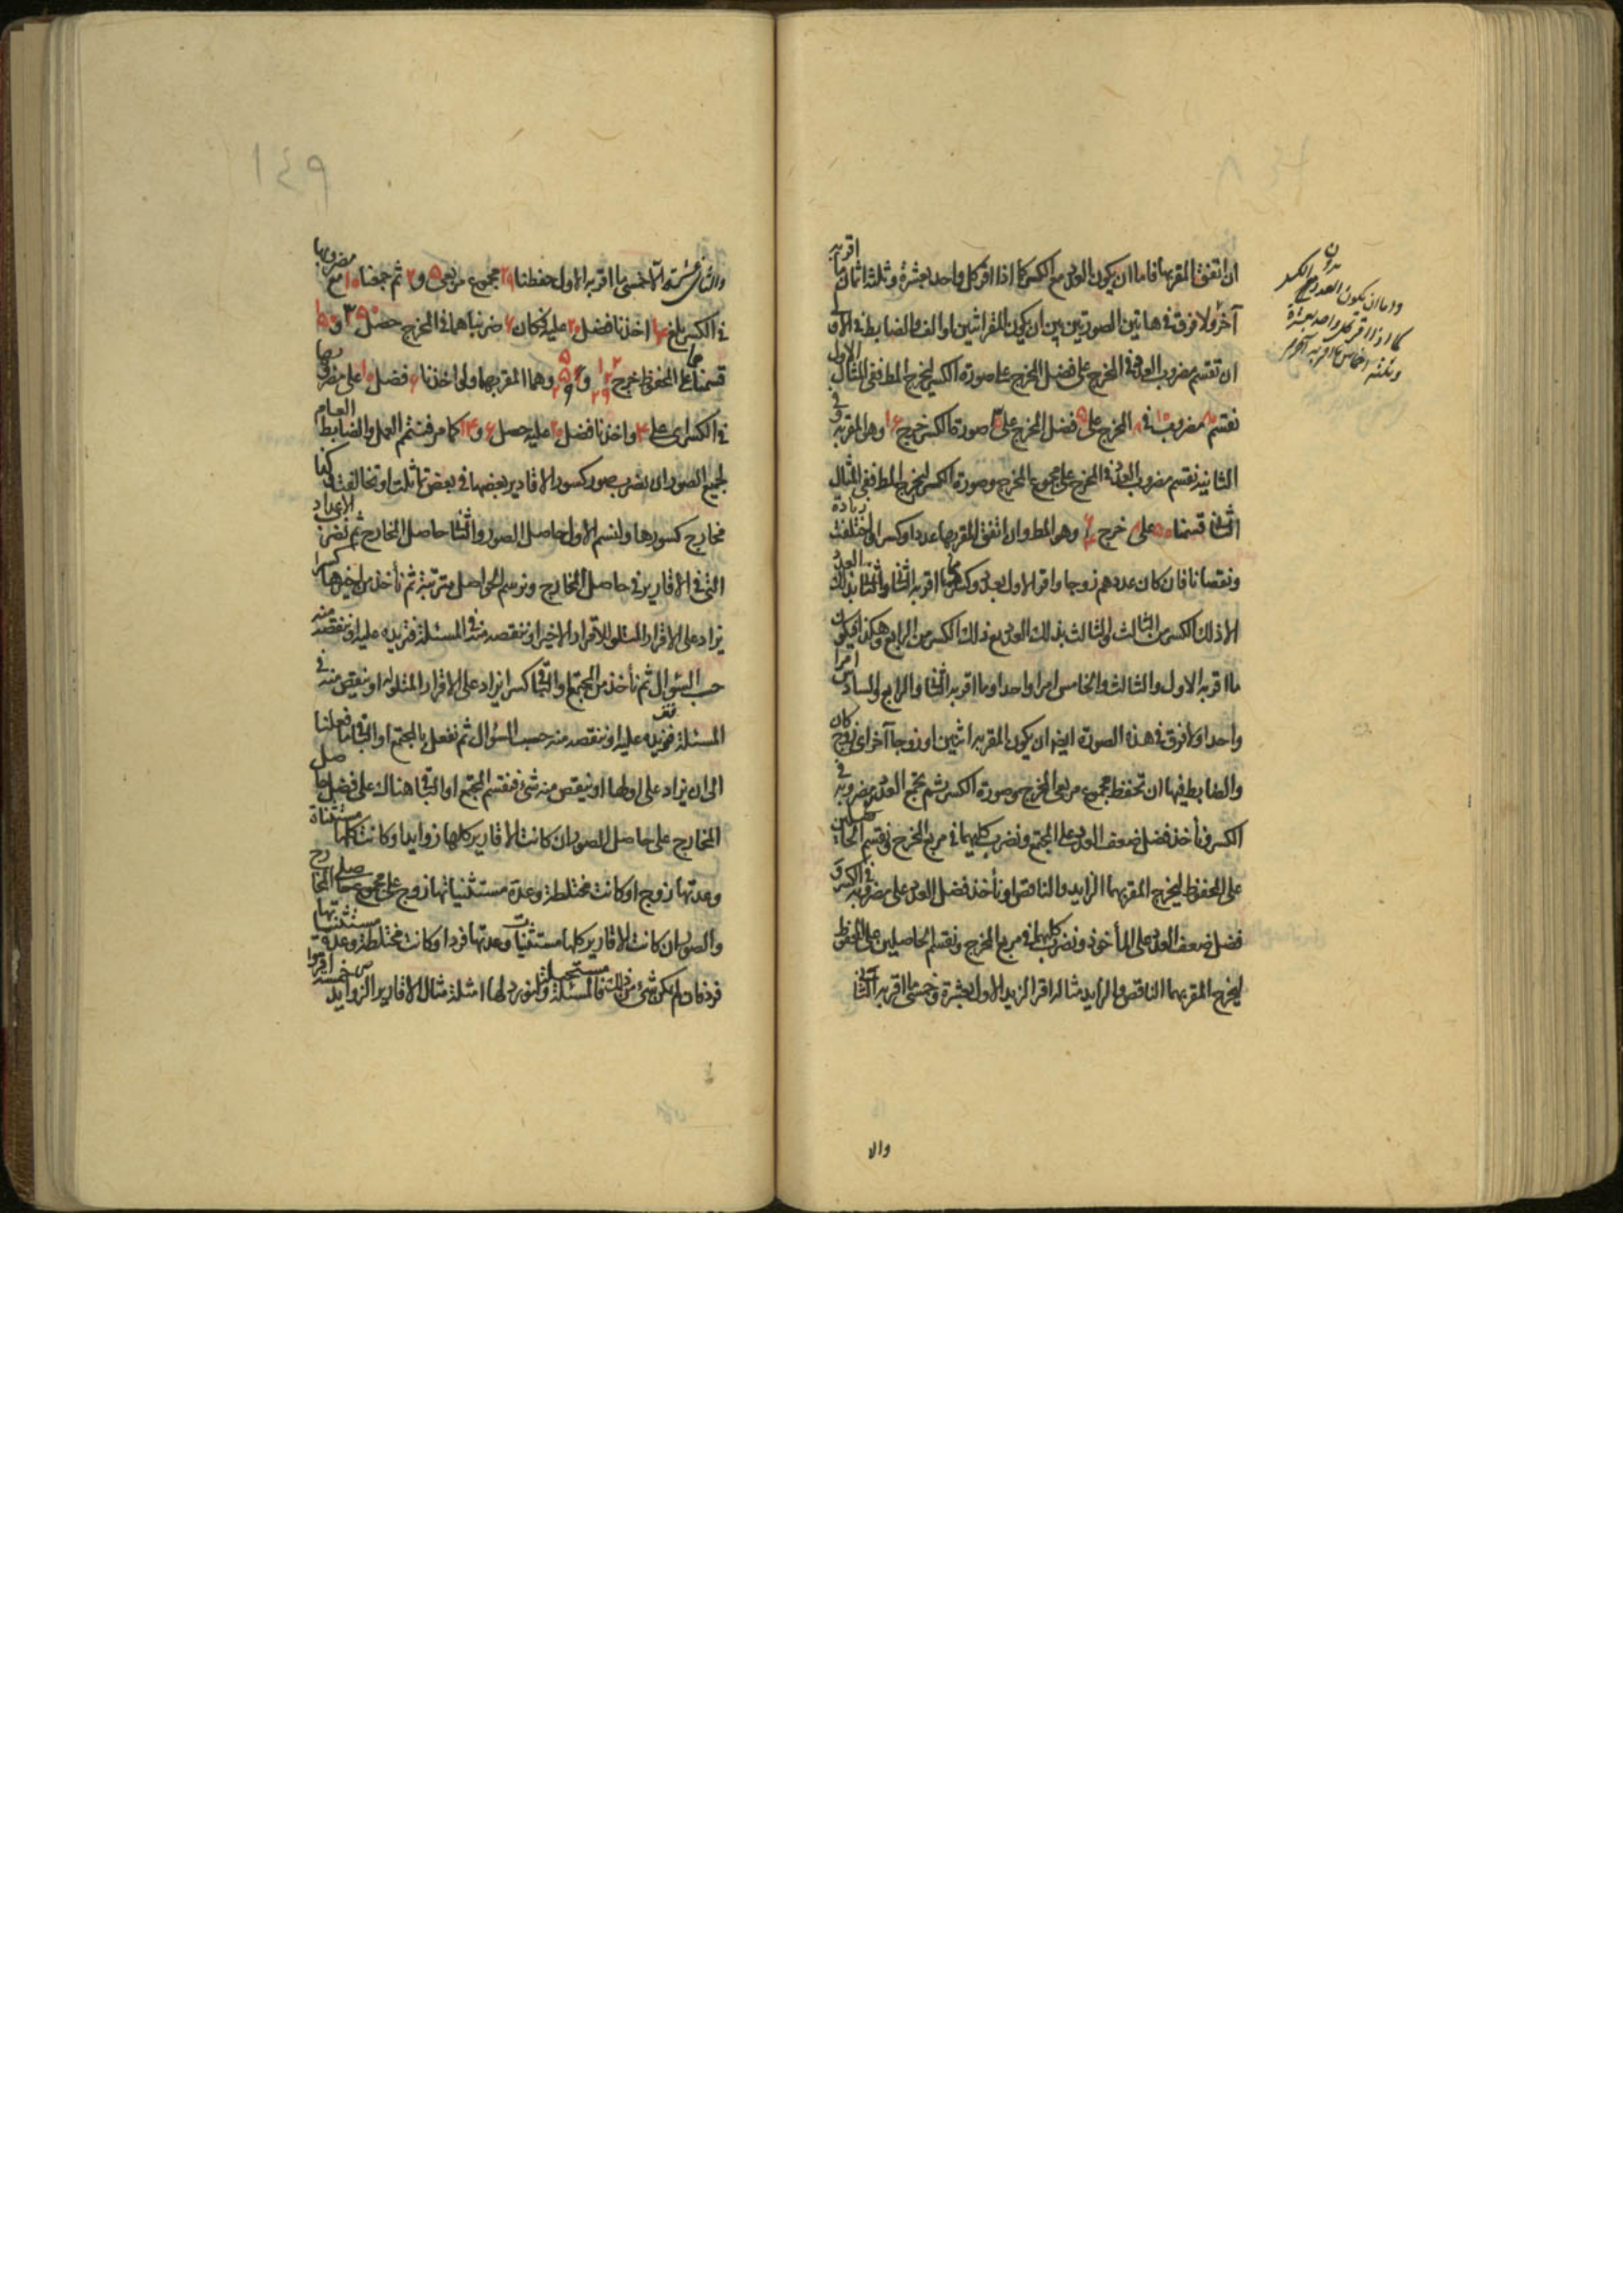 ان اتفق المقر بها فاما ان يكون العدد مع الكسر كما اذا اقر كل واحد بعشرة وثلثة اثمان ما اقر به
آخر ولا فرق في هاتين الصورتين بين ان يكون المقر اثنين او الف والضابط في
ان تقسم مضروب العدد في المخرج على فضل المخرج على صورة الكسر ليخرج المط ففي المثال الاول
نقسم ٨٠ مضروب ١٠ في ٨ المخرج على ٥ فضل المخرج على ٣ صورة الكسر خرج ١٦ وهو المقر به وفي
الثانية نقسم مضروب العدد في المخرج على مجموع المخرج وصورة الكسر ليخرج المط ففي المثال
الثاني قسمنا ٥٠ على ٨ خرج وهو المط وان اتفق المقر بها عددا وكسرا واختلفت زيادة
ونقصانا فان كان عددهم زوجا واقر الاول بعدد وكسر مما اقر به الثاني والثاني بذلك العدد
الا ذلك الكسر من الثالث والثالث بذلك العدد مع ذلك الكسر من الرابع وهكذا فيكون
ما اقر به الاول والثالث والخامس امرا واحدا وما اقر به الثاني والرابع والسادس امرا
واحدا ولا فرق في هذه الصورة ايضا ان يكون المقر به اثنين او زوجا آخر اي زوج كان
والضابط فيها ان تحفظ مجموع مربعي المخرج وصورة الكسر ثم تجمع العدد مع مضروبه في
الكسر وتأخذ فضل ضعف العدد على المجتمع ونضرب كليهما في مربع المخرج ونقسم الحاصلين
على المحفوظ ليخرج المقر بهما الزايد والناقص او نأخذ فضل العدد على مضروبه في الكسر و
فضل ضعف العدد على المأخوذ ونضرب كليهما في مربع المخرج ونقسم الحاصلين على المحفوظ
ليخرج المقر بهما الناقص والزايد مثاله اقر الزيد الاول بعشرة وخمسي ما اقر به الثاني
والا
واما ان يكون العدد مع الكسر
كما اذا اقر كل واحد بعشرة
وثلثة اخماس ما اقر به آخر
١٤٩
والثاني الا خمسي ما اقر به الاول حفظنا ٢٩ مجموع مربعي ٥ و ٢ ثم جمعنا ١٠ مع مضروبها
في الكسر بلغ ١٤ اخذنا فضل ٢٠ عليه فكان ٦ ضربناهما في المخرج حصل ٣٥٠ و ١٥٠
قسمناهما على المحفوظ خرج ١٢ ٢ ٢٩ و ٥ ٥ ٢٩ وهما المقر بهما ولو اخذنا ٦ فضل ١٠ على مضروبها
في الكسر اي على ٤ واخذنا فضل ٢٠ عليه حصل ٦ و ١٤ كما مر فنتم العمل والضابط العام
لجميع الصور ان نضرب صور كسور الاقارير بعضها في بعض تماثلت او تخالفت وكذا
مخارج كسورها ولنسم الاول حاصل الصور والثاني حاصل المخارج ثم نضرب الاعداد
التي في الاقارير في حاصل المخارج ونرسم الحواصل مترتبة ثم نأخذ من اخيرها كسرا
يزاد على الاقرار المتلو للاقرار الاخير او ينقص منه في المسئلة فنزيده عليه او ننقصه منه
حسب السؤال ثم نأخذ من المجتمع او الباقي كسرا يزاد على الاقرار المتلو له او ينقص منه في
المسئلة فنزيده عليه او ننقصه منه حسب السؤال ثم نفعل بالمجتمع او الباقي ما فعلنا
الى ان يزاد على اولها او ينقص منه شئ فنقسم المجتمع او الباقي هناك على فضل حاصل
المخارج على حاصل الصور ان كانت الاقارير كلها زوايد او كانت كلها مستثناة
وعدتها زوج او كانت مختلطة وعدة مستثنياتها زوج وعلى مجموع حاصلي المخارج
والصور ان كانت الاقارير كلها مستثنيات وعدتها فرد او كانت مختلطة وعدة مستثنياتها
فرد فان لم يكن شئ من ذلك فالمسئلة مستحيلة ولنورد لها امثلة مثال الاقارير الزوايد خمسة اقروا